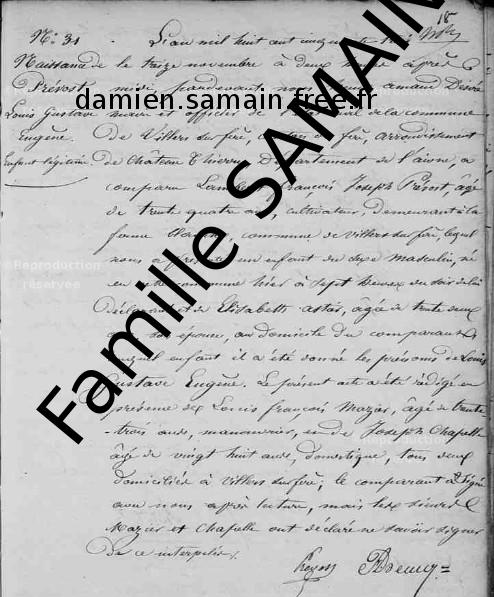 18
N.º 31
Naissance de
Prévost
Louis Gustave
Eugène.
Enfant légitime
L'an mil huit cent cinquante trois
le treize novembre à deux heures après
midi, pardevant nous
maire et officier de l'état civil de la commune
De Villers sur fère, canton de fère, arrondissement
de Château Thierry, Département de l'aisne, a
comparu François Joseph Prévost, âgé
de trente quatre ans, cultivateur, demeurant à la
ferme commune de Villers sur fère, lequel
nous a présenté un enfant du sexe masculin, né
en cette commune hier à sept heures du soir de lui
déclarant et de Elisabeth âgée de trente deux
ans son épouse, au domicile du comparant
auquel enfant il a été donné les prénoms de Louis
Gustave Eugène. Le présent acte a été rédigé en
présence de Louis françois Mazier, âgé de trente
-trois ans, manouvrier, et de Joseph Chapelle
âgé de vingt huit ans, domestique, tous deux
domiciliés à Villers sur fère; le comparant a signé
avec nous après lecture, mais les sieurs
Mazier et Chapelle ont déclaré ne savoir signer
de ce interpellés.
Prévost
damien.samain.free.fr
Famille SAMAIN
©Reproduction
réservée